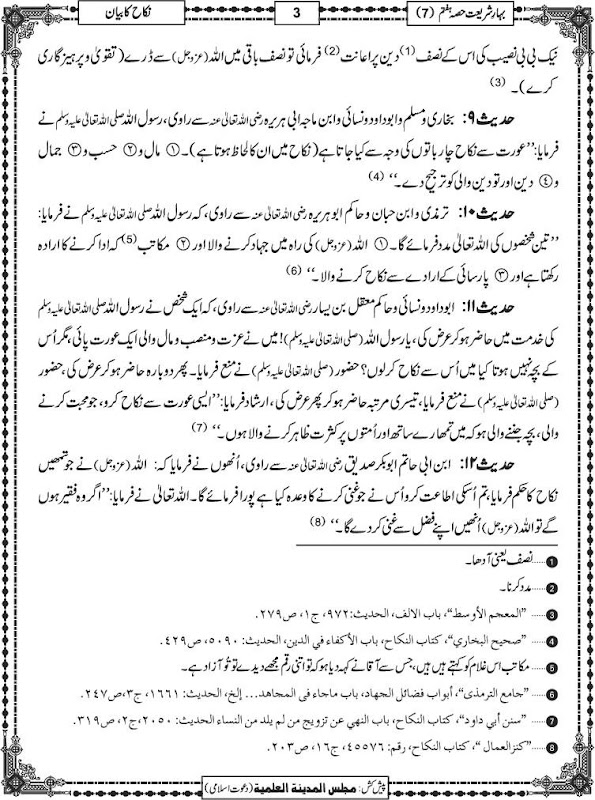 بہارِ شریعت حصہ ہفتم (7)
3
نکاح کا بیان
نیک بی بی نصیب کی اس کے نصف (1) دین پر اعانت (2) فرمائی تو نصف باقی میں اللہ (عزوجل) سے ڈرے (تقویٰ و پرہیزگاری
کرے)۔ (3)
حدیث ۹: بخاری و مسلم و ابو داود و نسائی و ابن ماجہ ابی ہریرہ رضی اللہ تعالیٰ عنہ سے راوی، رسول اللہ صلی اللہ تعالیٰ علیہ وسلم نے
فرمایا: ’’عورت سے نکاح چار باتوں کی وجہ سے کیا جاتا ہے (نکاح میں ان کا لحاظ ہوتا ہے)۔ ① مال و ② حسب و ③ جمال
و ④ دین اور تو دین والی کو ترجیح دے۔‘‘ (4)
حدیث ۱۰: ترمذی و ابن حبان و حاکم ابو ہریرہ رضی اللہ تعالیٰ عنہ سے راوی، کہ رسول اللہ صلی اللہ تعالیٰ علیہ وسلم نے فرمایا:
’’تین شخصوں کی اللہ تعالیٰ مدد فرمائے گا۔ ① اللہ (عزوجل) کی راہ میں جہاد کرنے والا اور ② مکاتب (5) کہ ادا کرنے کا ارادہ
رکھتا ہے اور ③ پارسائی کے ارادے سے نکاح کرنے والا۔‘‘ (6)
حدیث ۱۱: ابو داود و نسائی و حاکم معقل بن یسار رضی اللہ تعالیٰ عنہ سے راوی، کہ ایک شخص نے رسول اللہ صلی اللہ تعالیٰ علیہ وسلم
کی خدمت میں حاضر ہو کر عرض کی، یا رسول اللہ (صلی اللہ تعالیٰ علیہ وسلم)! میں نے عزت و منصب و مال والی ایک عورت پائی، مگر اُس
کے بچہ نہیں ہوتا کیا میں اُس سے نکاح کرلوں؟ حضور (صلی اللہ تعالیٰ علیہ وسلم) نے منع فرمایا۔ پھر دوبارہ حاضر ہو کر عرض کی، حضور
(صلی اللہ تعالیٰ علیہ وسلم) نے منع فرمایا، تیسری مرتبہ حاضر ہو کر پھر عرض کی، ارشاد فرمایا: ’’ایسی عورت سے نکاح کرو، جو محبت کرنے
والی، بچہ جننے والی ہو کہ میں تمھارے ساتھ اور اُمتوں پر کثرت ظاہر کرنے والا ہوں۔‘‘ (7)
حدیث ۱۲: ابن ابی حاتم ابو بکر صدیق رضی اللہ تعالیٰ عنہ سے راوی، اُنھوں نے فرمایا کہ: اللہ (عزوجل) نے جو تمھیں
نکاح کا حکم فرمایا، تم اُسکی اطاعت کرو اُس نے جو غنی کرنے کا وعدہ کیا ہے پورا فرمائے گا۔ اللہ تعالیٰ نے فرمایا: ’’اگر وہ فقیر ہوں
گے تو اللہ (عزوجل) اُنھیں اپنے فضل سے غنی کر دے گا۔‘‘ (8)
1 ..... نصف یعنی آدھا۔
2 ..... مدد کرنا۔
3 ..... ’’المعجم الأوسط‘‘، باب الالف، الحدیث: ۹۷۲، ج۱، ص۲۷۹.
4 ..... ’’صحیح البخاري‘‘، کتاب النکاح، باب الأکفاء في الدین، الحدیث: ۵۰۹۰، ص۴۲۹.
5 ..... مکاتب اس غلام کو کہتے ہیں ہیں، جس سے آقا نے کہہ دیا ہو کہ تو اتنی رقم مجھے دیدے تو تُو آزاد ہے۔
6 ..... ’’جامع الترمذی‘‘، أبواب فضائل الجهاد، باب ماجاء فی المجاهد... إلخ، الحدیث: ۱۶۶۱، ج۳، ص۲۴۷.
7 ..... ’’سنن أبي داود‘‘، کتاب النکاح، باب النهي عن تزویج من لم یلد من النساء الحدیث: ۲۰۵۰، ج۲، ص۳۱۹.
8 ..... ’’کنزالعمال‘‘، کتاب النکاح، رقم: ۴۵۵۷۶، ج۱۶، ص۲۰۳.
پیش کش: مجلس المدینة العلمیة (دعوت اسلامی)